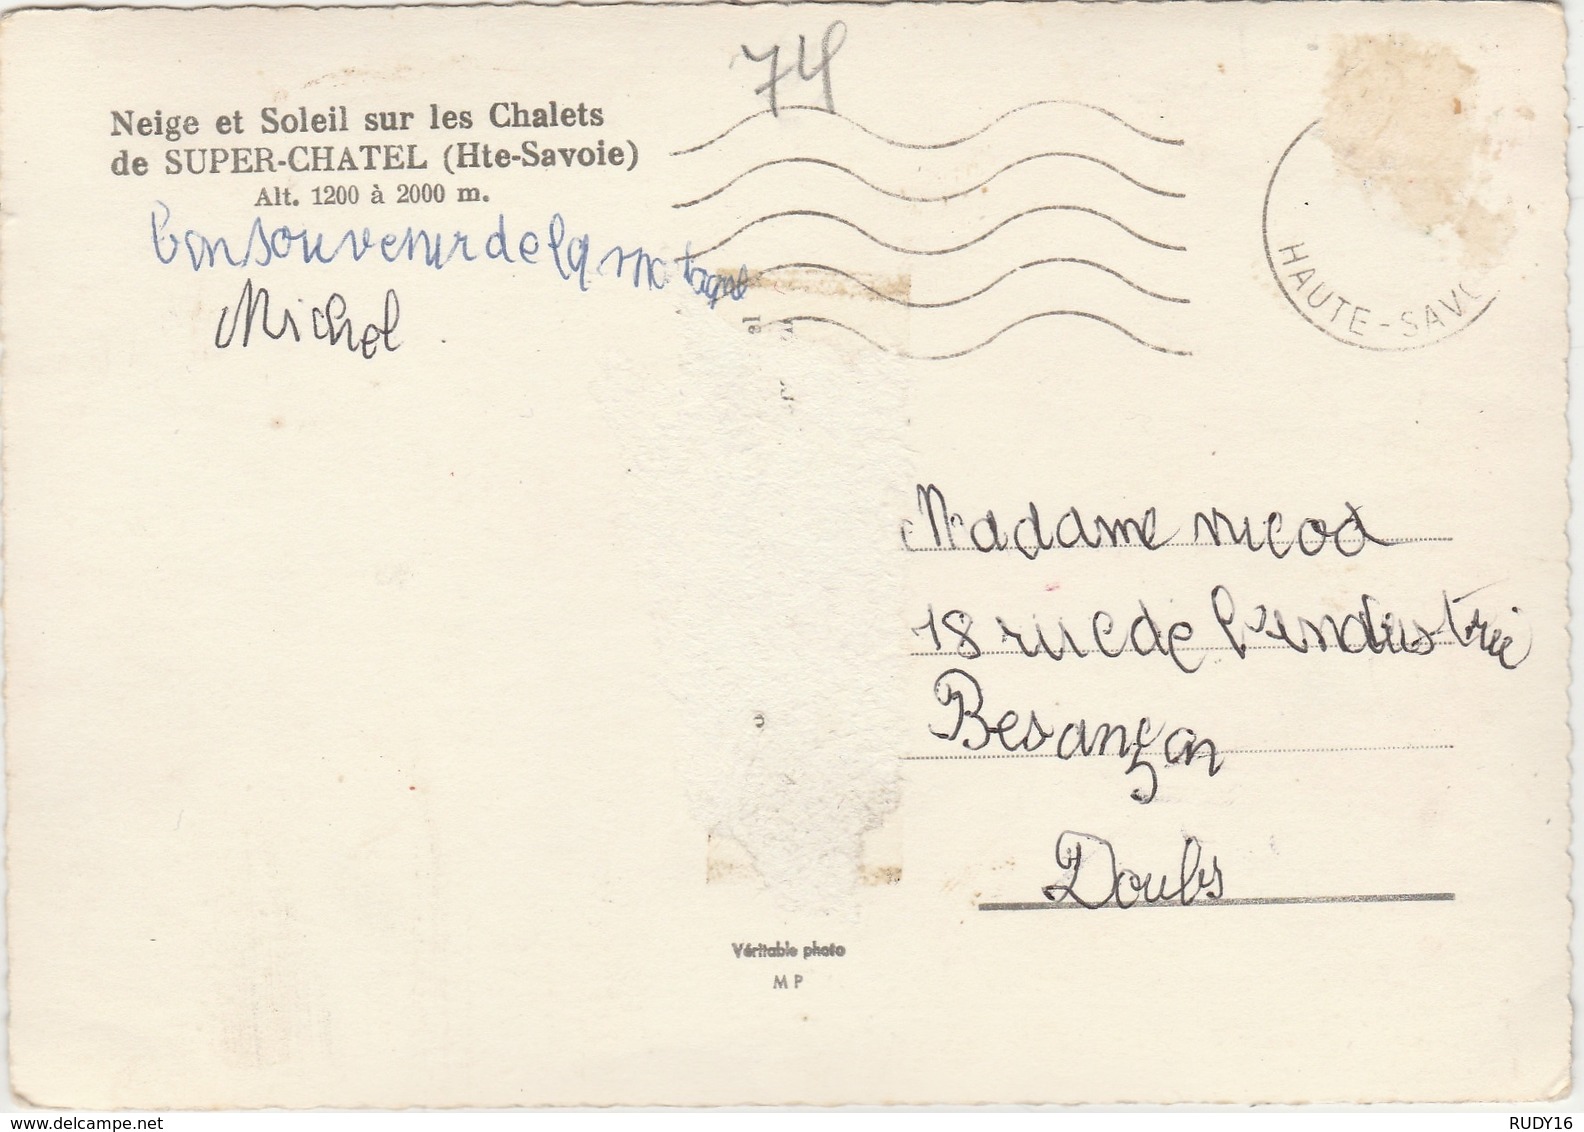 74
Neige et Soleil sur les Chalets
de SUPER-CHATEL (Hte-Savoie)
Alt. 1200 à 2000 m.
bon souvenir de la
Michel
HAUTE-SAVO
Madame nicod
18 rue de l'industrie
Besançon
Doubs
Véritable photo
M P
www.delcampe.net
RUDY16